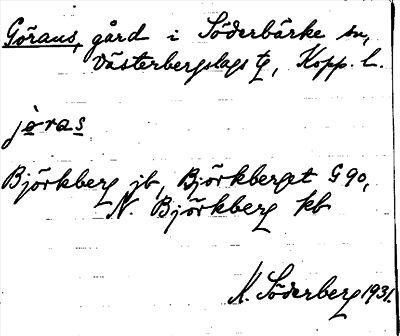 Görans, gård i Söderbärke sn,
Västerbergslags tg, Kopp. l.
jöras
Björkberg jb, Björkberget G90,
N. Björkberg kb
K. Söderberg 1931.